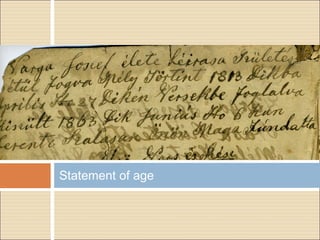 Varga Josef élete Leirasa Születés
étül fogva Mely Törtent 1813 Dikba
április Ho 27 Dikén Versekbe foglalva
készült 1863 Dik Junius Ho 6 kan
Szalasan Maga Fundatta
Vers
Statement of age